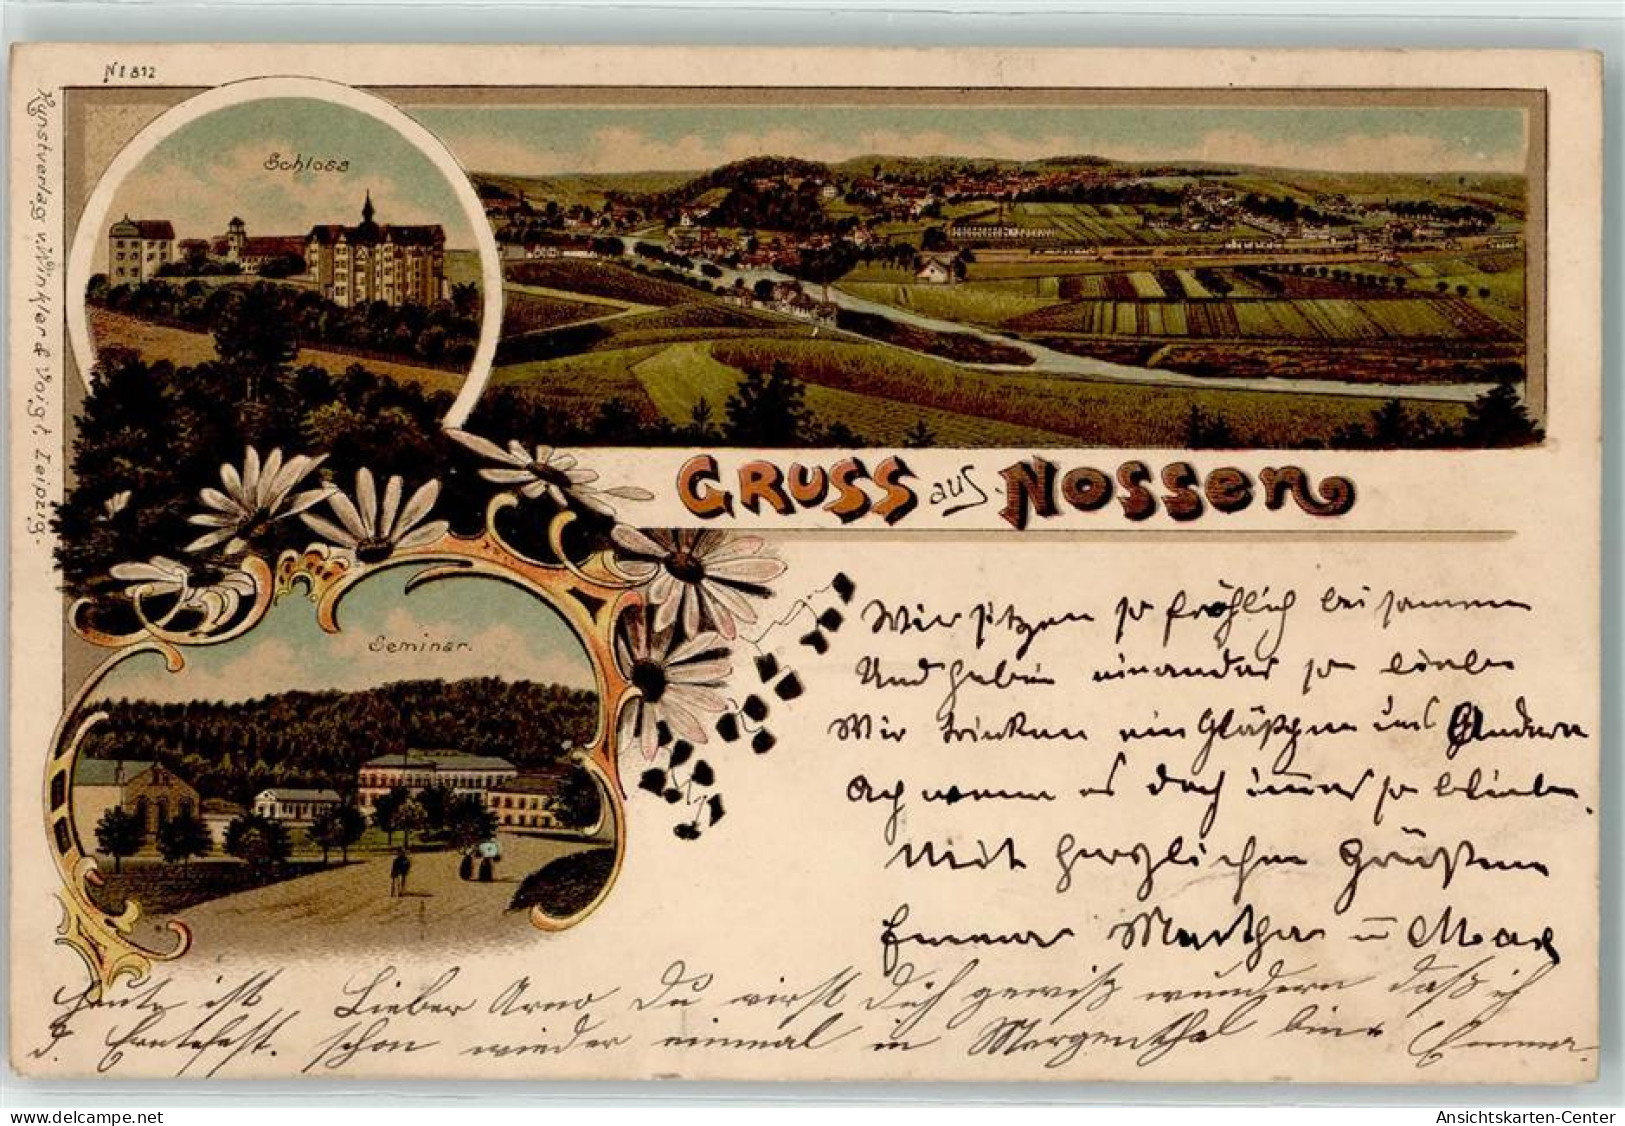 N I 812
Kunstverlag Winkler & Voigt Leipzig.
Schloss
GRUSS aus NOSSEN
Seminar.
Wir sitzen so fröhlich beisammen
Und haben einander so lieb
Wir trinken ein Gläschen ums Andere
Ach wenn es doch immer so bliebe.
Mit herzlichen Grüßen
Emma Martha u Max
heute ist Lieber Arno Du wirst Dich gewiß wundern daß ich
d. Erntefest. schon wieder einmal in Mergenthal bin. Emma.
delcampe.net
Ansichtskarten-Center